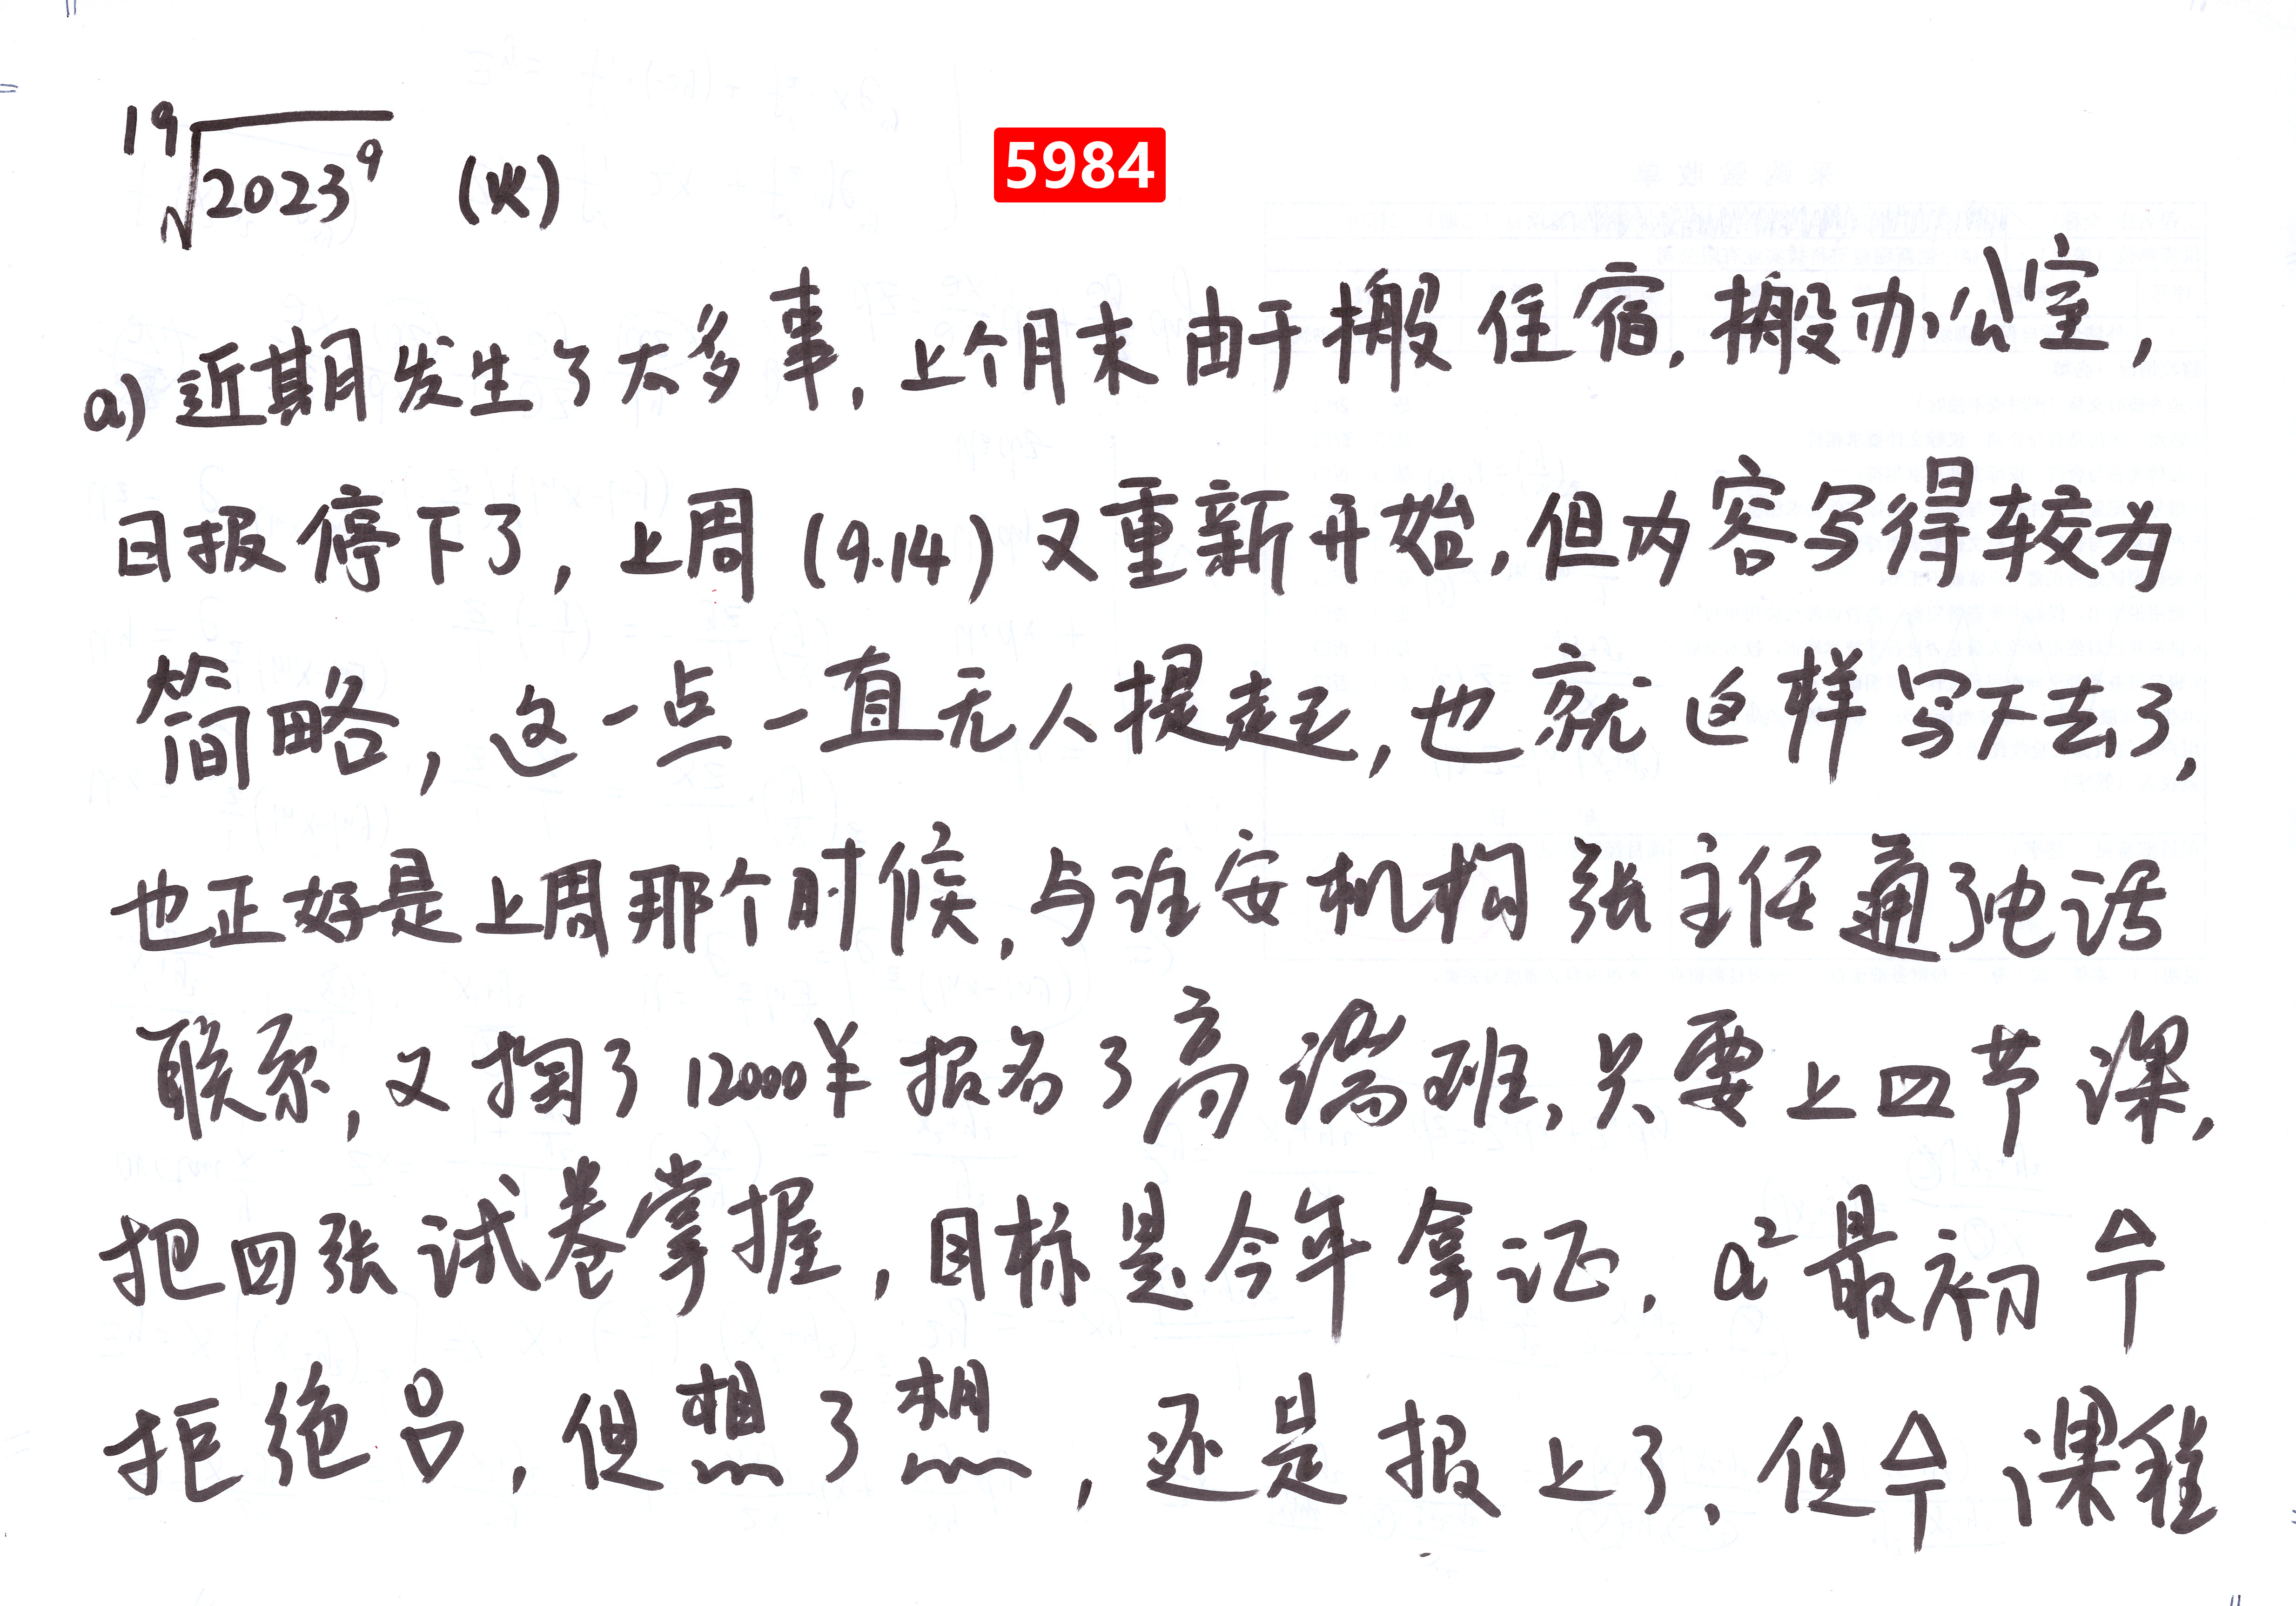 5984
¹⁹√2023⁹ (火)
a) 近期发生了太多事, 上个月末由于搬住宿, 搬办公室,
日报停下了, 上周 (9.14) 又重新开始, 但内容写得较为
简略, 这一点一直无人提起, 也就这样写下去了,
也正好是上周那个时候, 与注安机构张主任通了电话
联系, 又掏了12000羊报名了高端班, 只要上四节课,
把四张试卷掌握, 目标是今年拿证, a²最初
拒绝, 但想了想, 还是报上了, 但课程